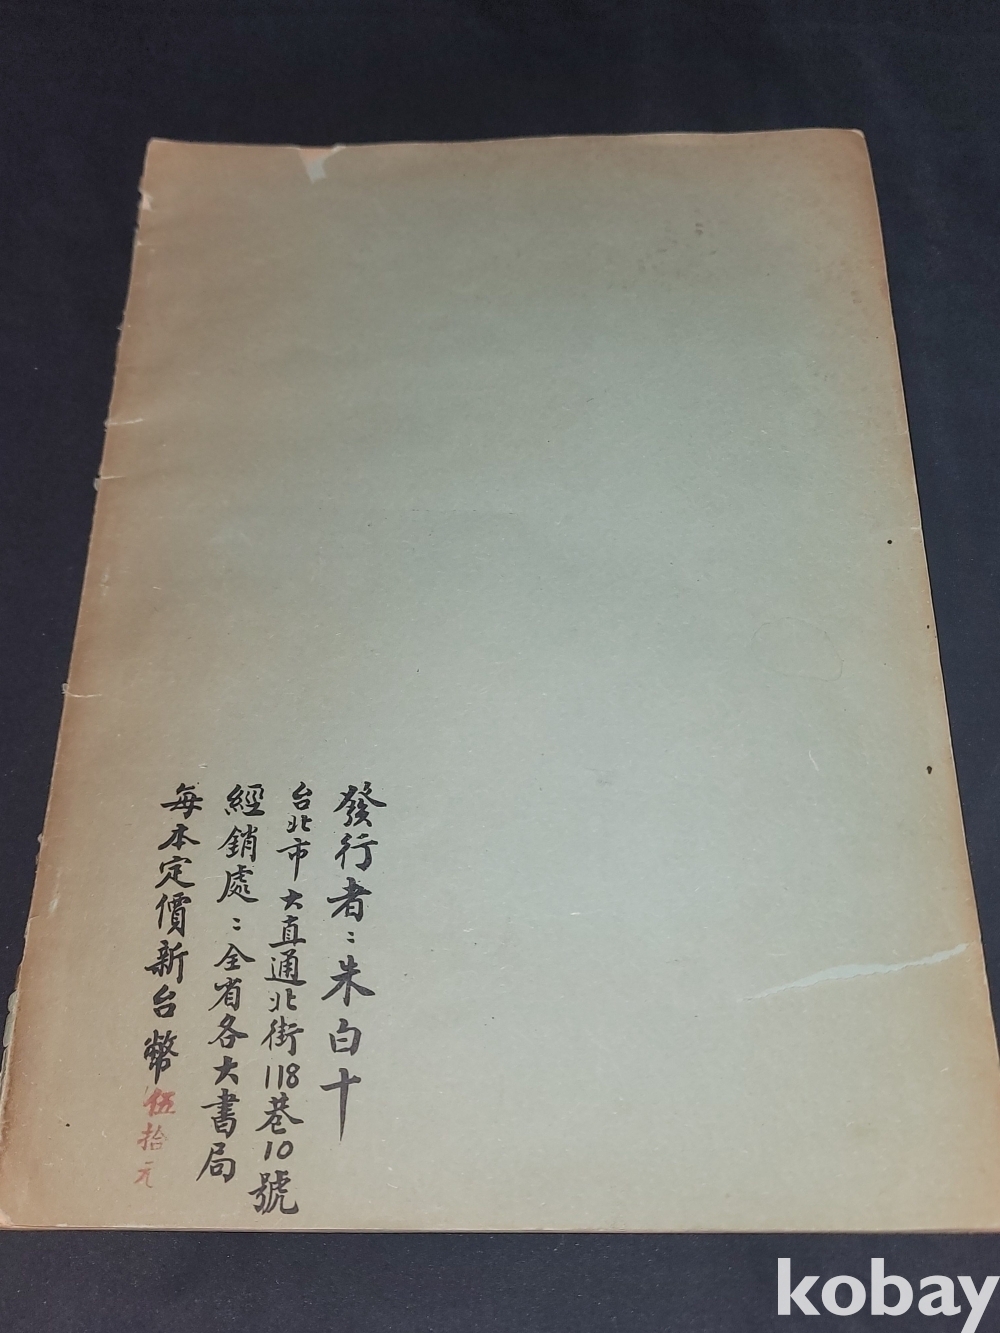 發行者：朱白十
台北市大直通北街118巷10號
經銷處：全省各大書局
每本定價新台幣伍拾元
kobay